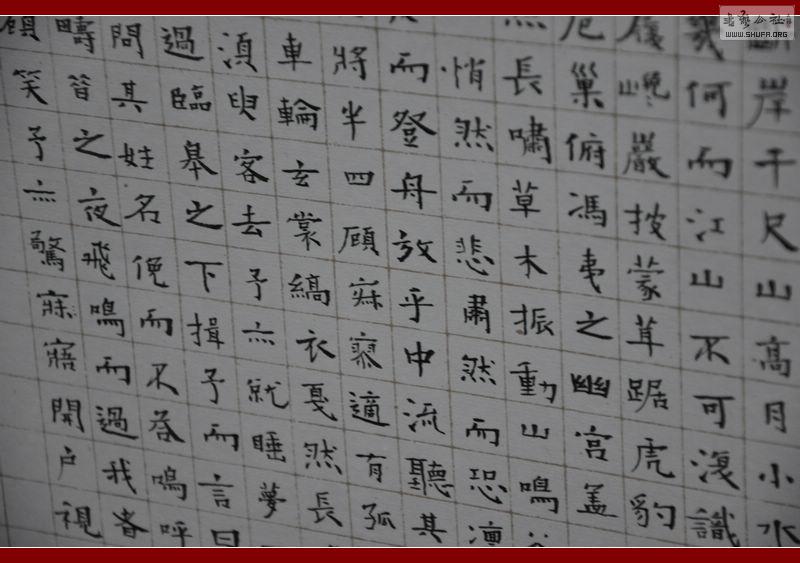 斷岸千尺山高月小水
幾何而江山不可復識
履巉巖披蒙茸踞虎豹
危巢俯馮夷之幽宮蓋
然長嘯草木振動山鳴谷
悄然而悲肅然而恐凜
而登舟放乎中流聽其
將半四顧寂寥適有孤
車輪玄裳縞衣戛然長
須臾客去予亦就睡夢
過臨皋之下揖予而言曰
問其姓名俛而不答鳴呼
疇昔之夜飛鳴而過我者
顧笑予亦驚寐寤開戶視
書藝公社
WWW.SHUFA.ORG